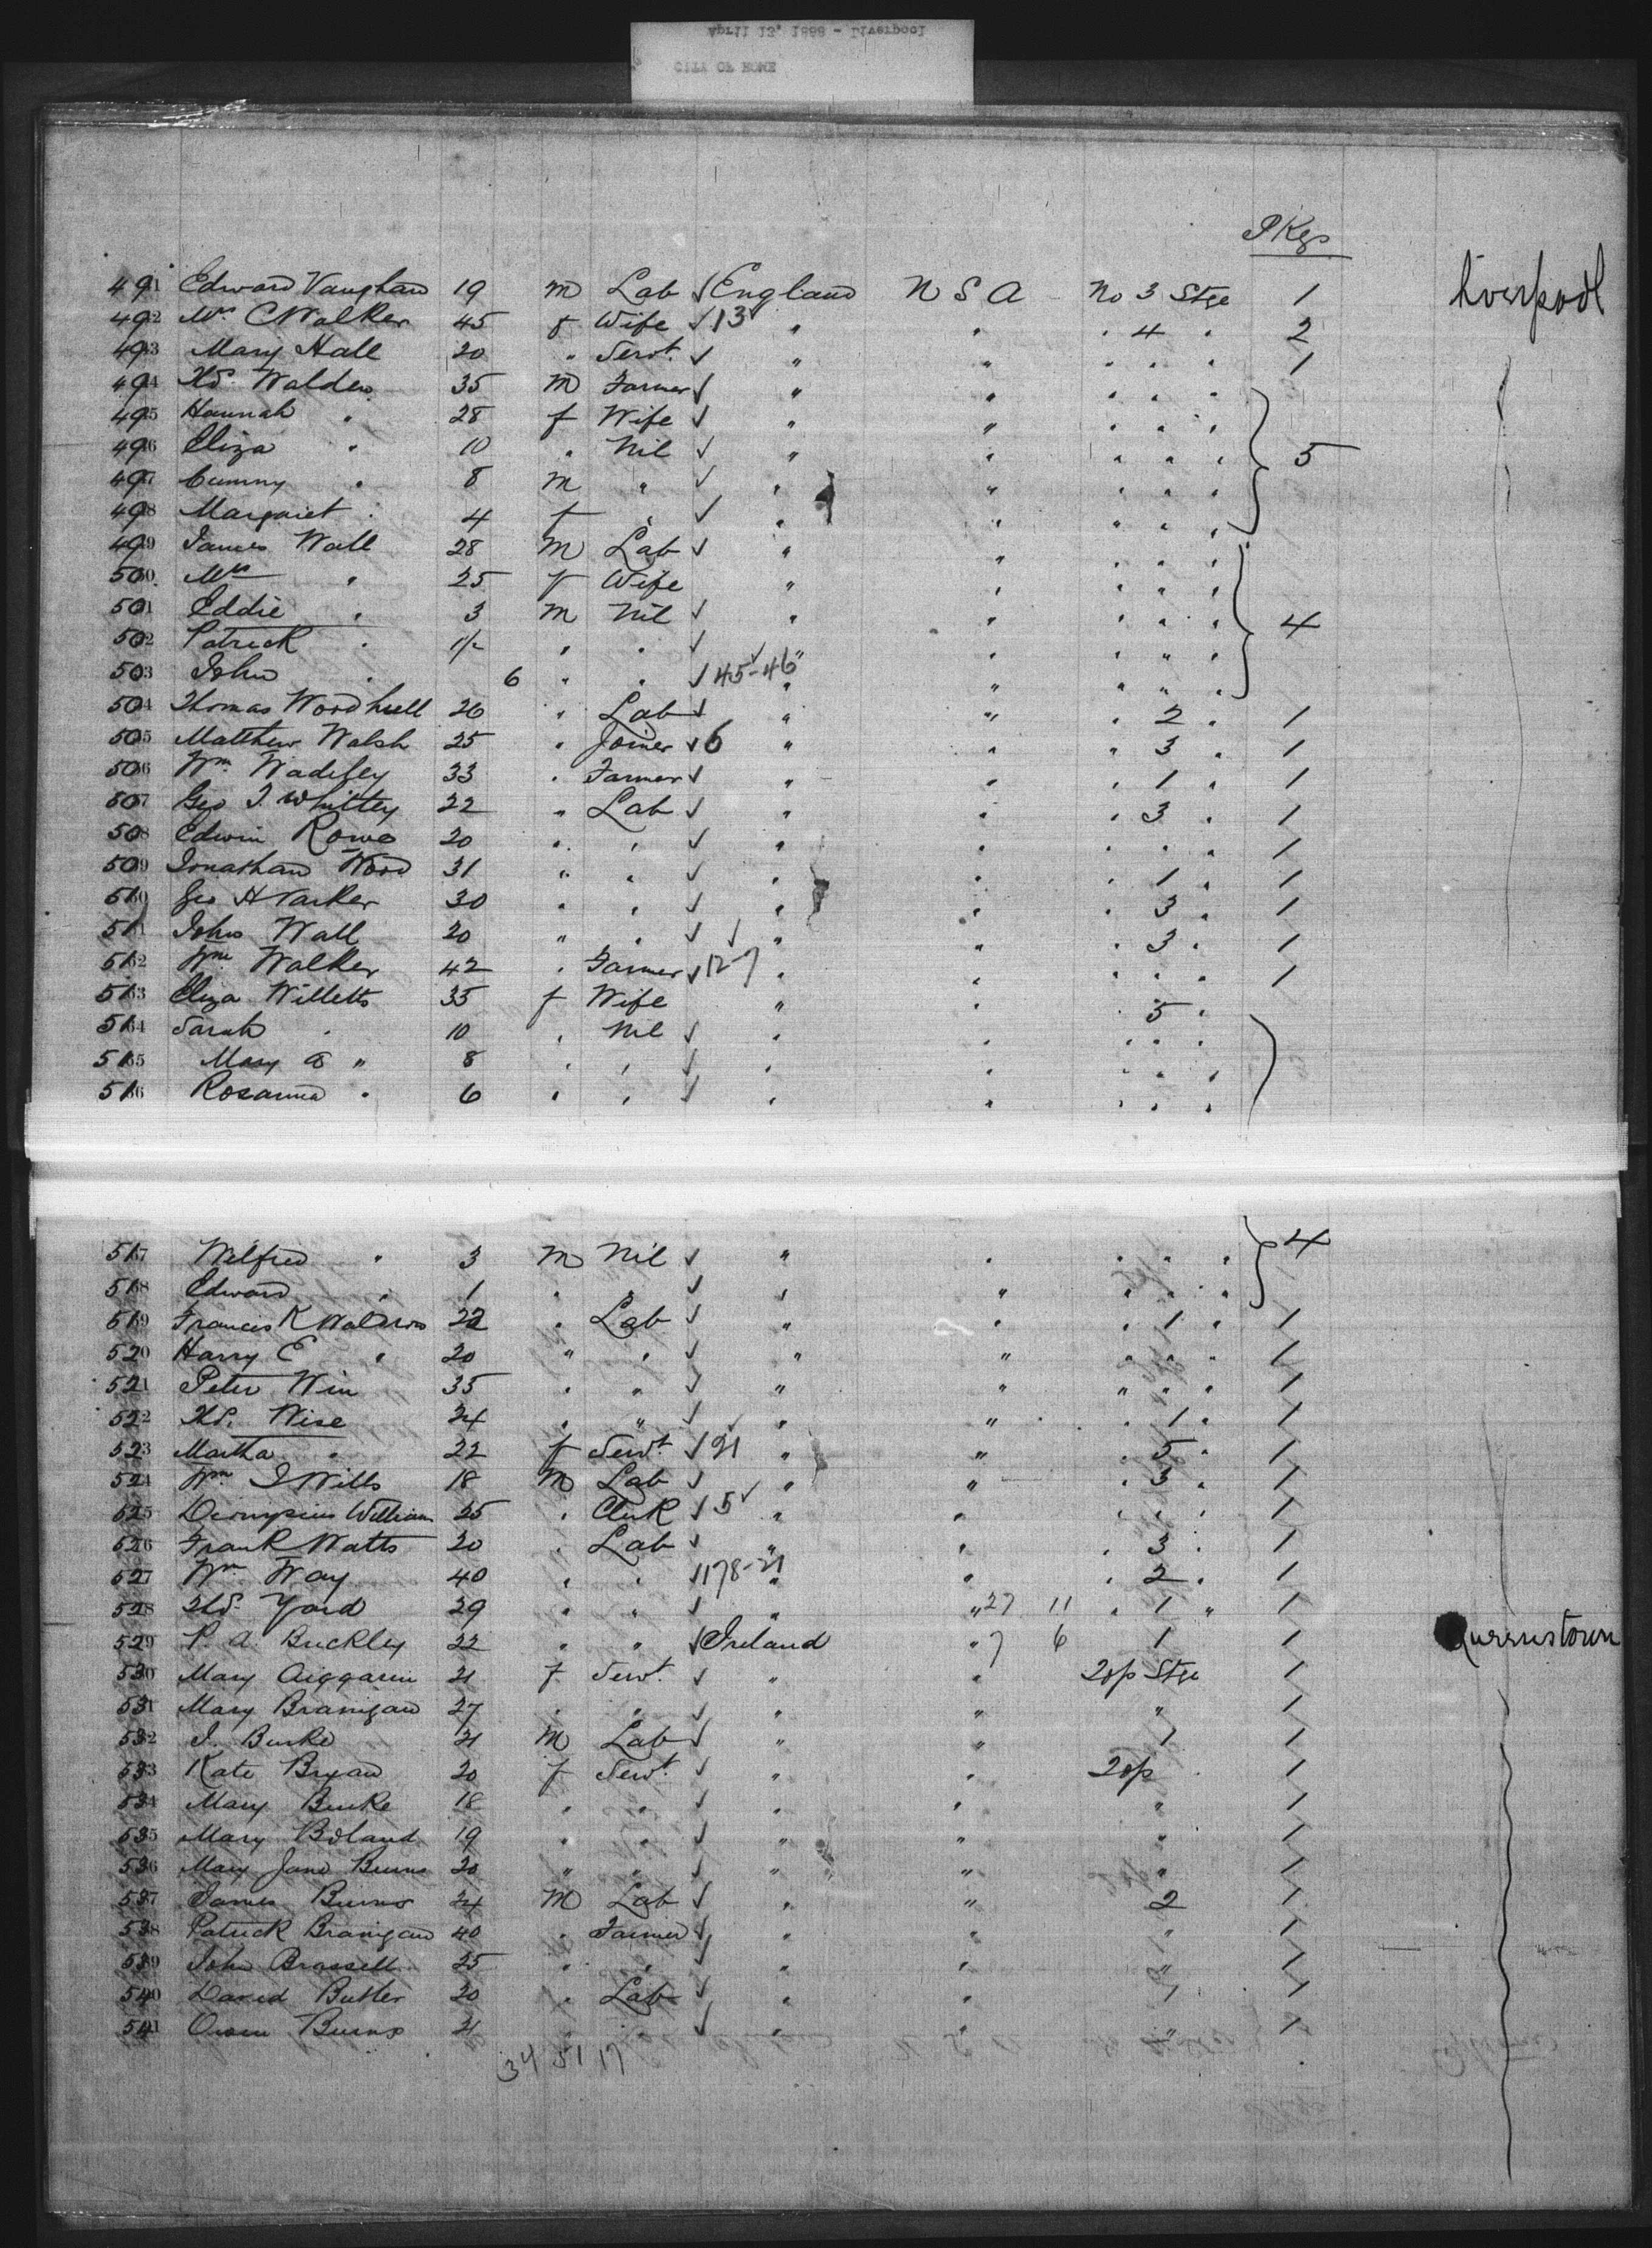 April 13, 1888 - Liverpool
CITY OF ROME
PKgs
491 Edward Vaughan 19 m Lab ✓ England U S A No 3 Stge 1 Liverpool
492 Mrs C Walker 45 f Wife ✓ 13 " " " 4 " 2
493 Mary Hall 20 " Servt. ✓ " " " " " 1
494 Walden 35 m Farmer ✓ " " " " "
495 Hannah " 28 f Wife ✓ " " " " "
496 Eliza " 10 " Nil ✓ " " " " " 5
497 " 8 m " ✓ " " " " "
498 Margaret " 4 f " ✓ " " " " "
499 James Wall 28 m Lab ✓ " " " " "
500 Mrs " 25 f Wife " " " " "
501 Eddie " 3 m Nil ✓ " " " " " 4
502 Patrick " " " ✓ " " " " "
503 John " 6 " " ✓ 45-46 " " " " "
504 Thomas Woodhull 26 " Lab ✓ " " " 2 " 1
505 Matthew Walsh 25 " Joiner ✓ 6 " " " 3 " 1
506 Wm 33 " Farmer ✓ " " " 1 " 1
507 Geo J. Whittey 22 " Lab ✓ " " " 3 " 1
508 Edwin Rowe 20 " " ✓ " " " " " 1
509 Jonathan Wood 31 " " ✓ " " " 1 " 1
510 Geo H 30 " " ✓ " " " 3 " 1
511 John Wall 20 " " ✓ " " " 3 " 1
512 Wm Walker 42 " Farmer ✓ " " " " " 1
513 Eliza Willetts 35 f Wife " " " 5 "
514 Sarah " 10 " Nil ✓ " " " "
515 Mary " 8 " " ✓ " " " " "
516 Rosanna " 6 " " ✓ " " " " "
517 Wilfred " 3 m Nil ✓ " " " " " 4
518 Edward " 1 " " ✓ " " " " "
519 Francis K 22 " Lab ✓ " " " 1 " 1
520 Harry E " 20 " " ✓ " " " " " 1
521 Peter Win 35 " " ✓ " " " " " 1
522 Wise 24 " " ✓ " " " 1 " 1
523 Martha " 22 f Servt ✓ 21 " " " 5 " 1
524 Wm J Wills 18 m Lab ✓ " " " 3 " 1
525 William 25 " Clerk ✓ 5 " " " " " 1
526 Frank Watts 20 " Lab ✓ " " " 3 " 1
527 Wm Way 40 " " ✓ " " " 2 " 1
528 Yard 29 " " ✓ " " 27 11 " 1 " 1
529 P. A. Buckley 22 " " ✓ Ireland " 7 6 1 1 Queenstown
530 Mary 21 f Servt. ✓ " " 20p Stge 1
531 Mary Branigan 27 " " ✓ " " " 1
532 J. Burke 21 m Lab ✓ " " 1 1
533 Kate Bryan 20 f Servt. ✓ " " 20p " 1
534 Mary Burke 18 " " ✓ " " " 1
535 Mary Boland 19 " " ✓ " " " 1
536 Mary Jane Burns 20 " " ✓ " " " 1
537 James Burns 24 m Lab ✓ " " 2 1
538 Patrick Branigan 40 " Farmer ✓ " " " 1
539 John Brassell 25 " " ✓ " " " 1
540 David Butler 20 " Lab ✓ " " 1 1
541 Owen Burns 21 " " ✓ " " " 1
34 51 17